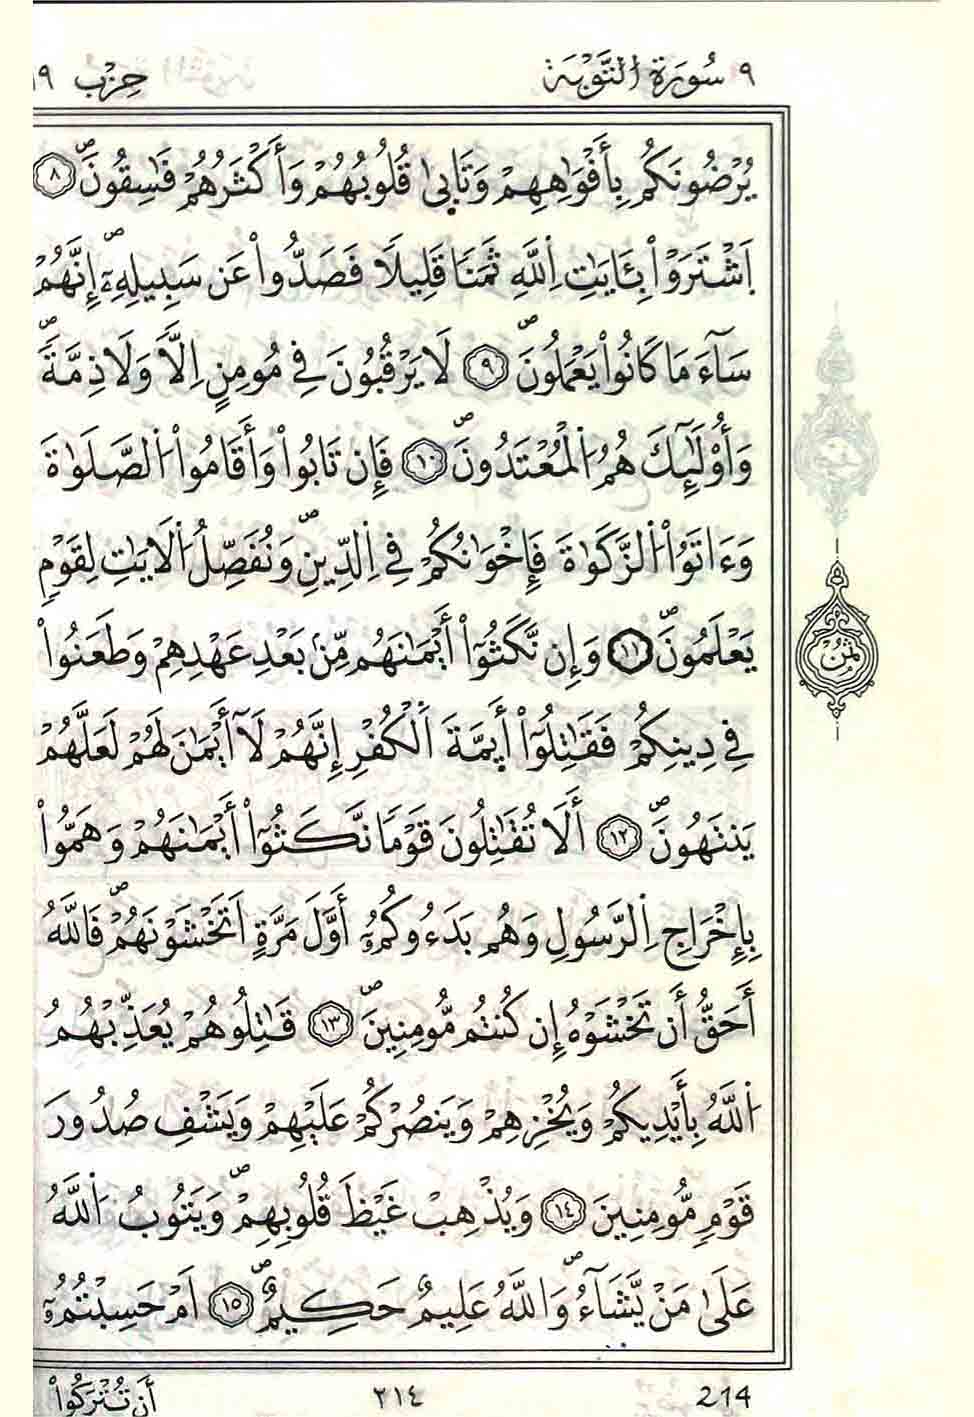 ٩ سُورَةُ التَّوْبَةِ
حِزْب ١٩
يُرْضُونَكُم بِأَفْوَٰهِهِمْ وَتَابِىٰ قُلُوبُهُمْ وَأَكْثَرُهُمْ فَٰسِقُونَۖ ٨
اَشْتَرَوْاْ بِـَٔايَٰتِ اِ۬للَّهِ ثَمَنٗا قَلِيلٗا فَصَدُّواْ عَن سَبِيلِهِۦٓۖ إِنَّهُمْ
سَآءَ مَا كَانُواْ يَعْمَلُونَۖ ٩ لَا يَرْقُبُونَ فِي مُومِنٍ اِلّٗا وَلَا ذِمَّةٗۖ
وَأُوْلَٰٓئِكَ هُمُ اُ۬لْمُعْتَدُونَۖ ١٠ فَإِن تَابُواْ وَأَقَامُواْ اُ۬لصَّلَوٰةَ
وَءَاتَوُاْ اُ۬لزَّكَوٰةَ فَإِخْوَٰنُكُمْ فِي اِ۬لدِّينِۖ وَنُفَصِّلُ اُ۬لَايَٰتِ لِقَوْمٖ
يَعْلَمُونَۖ ١١ وَإِن نَّكَثُوٓاْ أَيْمَٰنَهُم مِّنۢ بَعْدِ عَهْدِهِمْ وَطَعَنُواْ
فِي دِينِكُمْ فَقَٰتِلُوٓاْ أَيِمَّةَ اَ۬لْكُفْرِ إِنَّهُمْ لَآ أَيْمَٰنَ لَهُمْ لَعَلَّهُمْ
يَنتَهُونَۖ ١٢ أَلَا تُقَٰتِلُونَ قَوْمٗا نَّكَثُوٓاْ أَيْمَٰنَهُمْ وَهَمُّواْ
بِإِخْرَاجِ اِ۬لرَّسُولِ وَهُم بَدَءُوكُمُۥٓ أَوَّلَ مَرَّةٍ اَتَخْشَوْنَهُمْۖ فَاللَّهُ
أَحَقُّ أَن تَخْشَوْهُ إِن كُنتُم مُّومِنِينَۖ ١٣ قَٰتِلُوهُمْ يُعَذِّبْهُمُ
اُ۬للَّهُ بِأَيْدِيكُمْ وَيُخْزِهِمْ وَيَنصُرْكُمْ عَلَيْهِمْ وَيَشْفِ صُدُورَ
قَوْمٖ مُّومِنِينَ ١٤ وَيُذْهِبْ غَيْظَ قُلُوبِهِمْۖ وَيَتُوبُ اُ۬للَّهُ
عَلَىٰ مَنْ يَّشَآءُۖ وَاللَّهُ عَلِيمٌ حَكِيمٌۖ ١٥ اَمْ حَسِبْتُمُۥٓ
ثُمُن
أَن تُتْرَكُواْ
٢١٤
214